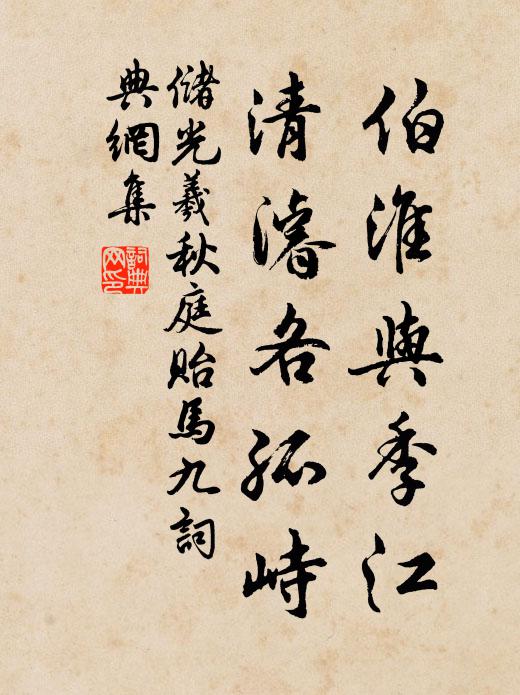 伯淮與季江
清濬各孤峙
儲光羲秋庭貽馬九詞
典網集
詞典網印